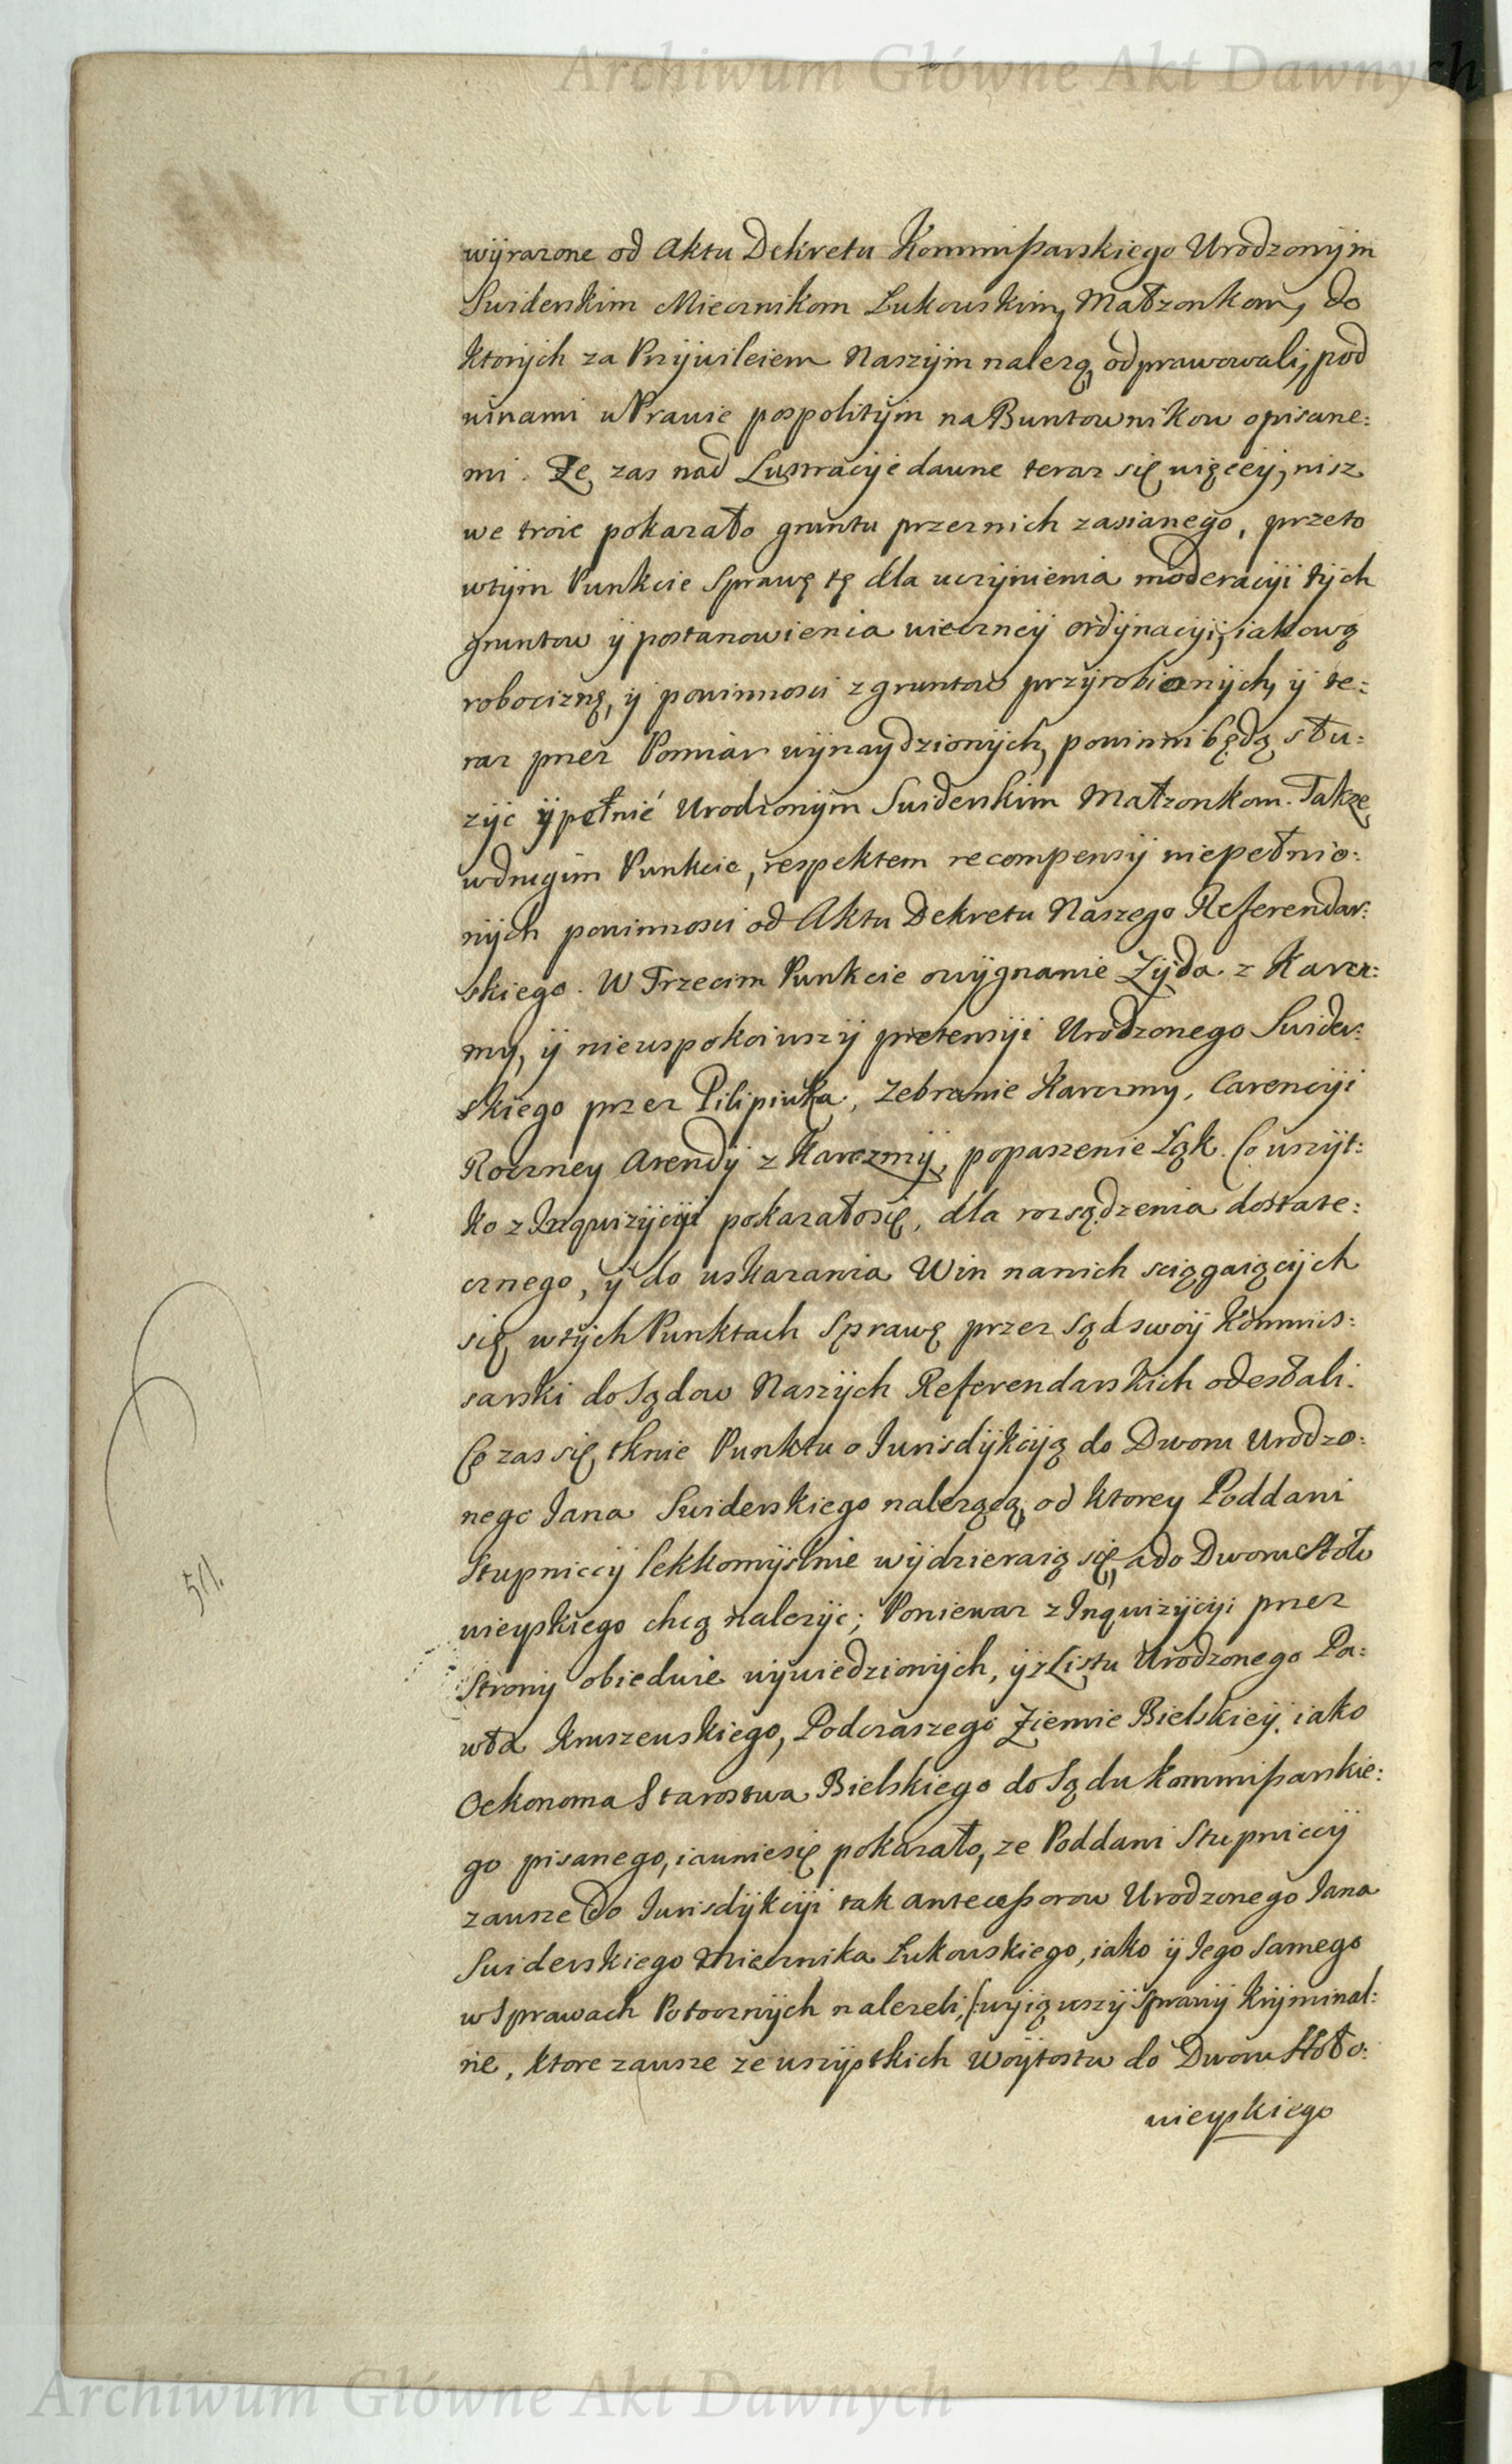 Archiwum Główne Akt Dawnych
wÿrazone od Aktu Dekretu Kommißarskiego Urodzonÿm
Swiderskim Miecznikom Łukowskim, Małzonkom, do
ktorÿch za Przÿwileiem Naszÿm nalezą, odprawowali, pod
winami w Prawie pospolitÿm na Buntownikow opisane:
mi. Ze, zas nad Lustracÿie dawne teraz się więceÿ, nisz
we troie pokazało gruntu przeznich zasianego, przeto
wtÿm Punkcie Sprawę tę dla uczÿnienia moderacÿi tÿch
gruntow ÿ postanowienia wiecznej ordÿnacÿi, iakową
robociznę, ÿ powinnosci z gruntow przÿrobionÿch, ÿ te:
raz przez Pomiar wÿnaydzionÿch, powinni będą słu:
zÿc ÿ pełnić Urodzonÿm Swiderskim Małzonkom. Takze,
wdrugim Punkcie, respektem recompensÿ niepełnio:
nÿch powinnosci od Aktu Dekretu Naszego Referendar:
skiego. W Trzecim Punkcie o wÿgnanie Zÿda z Karcz:
mÿ, ÿ nieuspokoiwszÿ pretensÿi Urodzonego Swider:
skiego przez Pilipiuka, Zebranie Karczmy, Carencÿi
Roczney Arendÿ z Karczmÿ, popaszenie Łąk. Co wszÿt:
ko z Inquizÿcÿi pokazałosię, dla rozsądzenia dostate:
cznego, ÿ do uskazania Win nanich sciągaiącÿch
się, wtÿch Punktach Sprawę przez Sąd swoÿ Kommis:
sarski do Sądow Naszÿch Referendarskich odesłali.
Co zas się, tknie Punktu o Iurisdÿkcÿą do Dworu Urodzo:
nego Iana Swiderskiego nalezącą, od ktorey Poddani
Stupniccÿ lekkomÿslnie wÿdzieraią się, a do Dworu Stoło
wieyskiego chcą nalezÿc; Poniewaz z Inquizÿcÿi przez
Stronÿ obiedwie wÿwiedzionÿch, ÿ z Listu Urodzonego Pa:
wła Kruszewskiego, Podczaszego Ziemie Bielskieÿ, iako
Oekonoma Starostwa Bielskiego do Sądu Kommißarskie:
go pisanego, iawniesię pokazało, ze Poddani Stupniccÿ
zawsze do Iurisdÿkcÿi tak anteceßorow Urodzonego Iana
Swiderskiego Miecznika Łukowskiego, iako ÿ Iego Samego
w Sprawach Potocznÿch nalezeli, (:wÿiąwszÿ Sprawÿ Krÿminal:
ne, ktore zawsze ze wszÿstkich Woÿtostw do Dworu Stoło:
wieyskiego
511.
Archiwum Główne Akt Dawnych